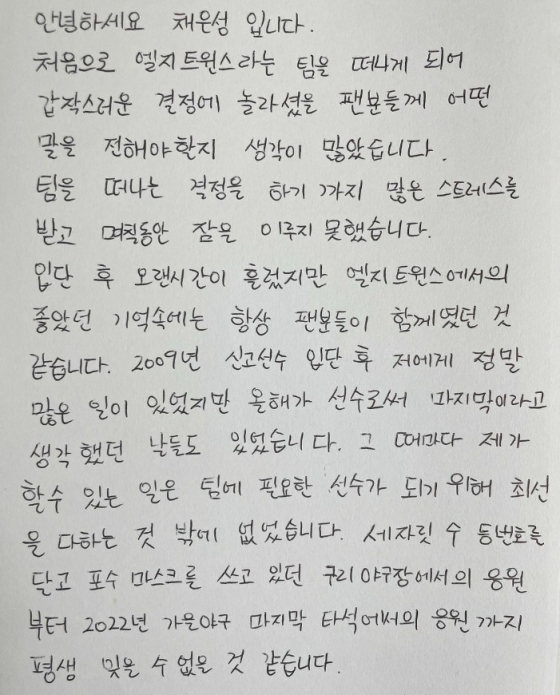 안녕하세요 채은성 입니다.
처음으로 엘지트윈스라는 팀을 떠나게 되어
갑작스러운 결정에 놀라셨을 팬분들께 어떤
말을 전해야할지 생각이 많았습니다.
팀을 떠나는 결정을 하기 까지 많은 스트레스를
받고 며칠동안 잠을 이루지 못했습니다.
입단 후 오랜시간이 흘렀지만 엘지트윈스에서의
좋았던 기억속에는 항상 팬분들이 함께였던 것
같습니다. 2009년 신고선수 입단 후 저에게 정말
많은 일이 있었지만 올해가 선수로써 마지막이라고
생각했던 날들도 있었습니다. 그 때마다 제가
할수 있는 일은 팀에 필요한 선수가 되기 위해 최선
을 다하는 것 밖에 없었습니다. 세자릿 수 등번호를
달고 포수 마스크를 쓰고 있던 구리야구장에서의 응원
부터 2022년 가을야구 마지막 타석에서의 응원 까지
평생 잊을 수 없을 것 같습니다.